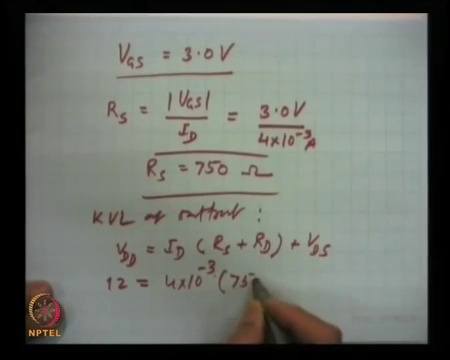 V_GS = 3.0 V
R_S = |V_GS| / I_D = 3.0 V / 4×10⁻³ A
R_S = 750 Ω
KVL at output :
V_DD = I_D ( R_S + R_D ) + V_DS
12 = 4×10⁻³ ( 75
NPTEL